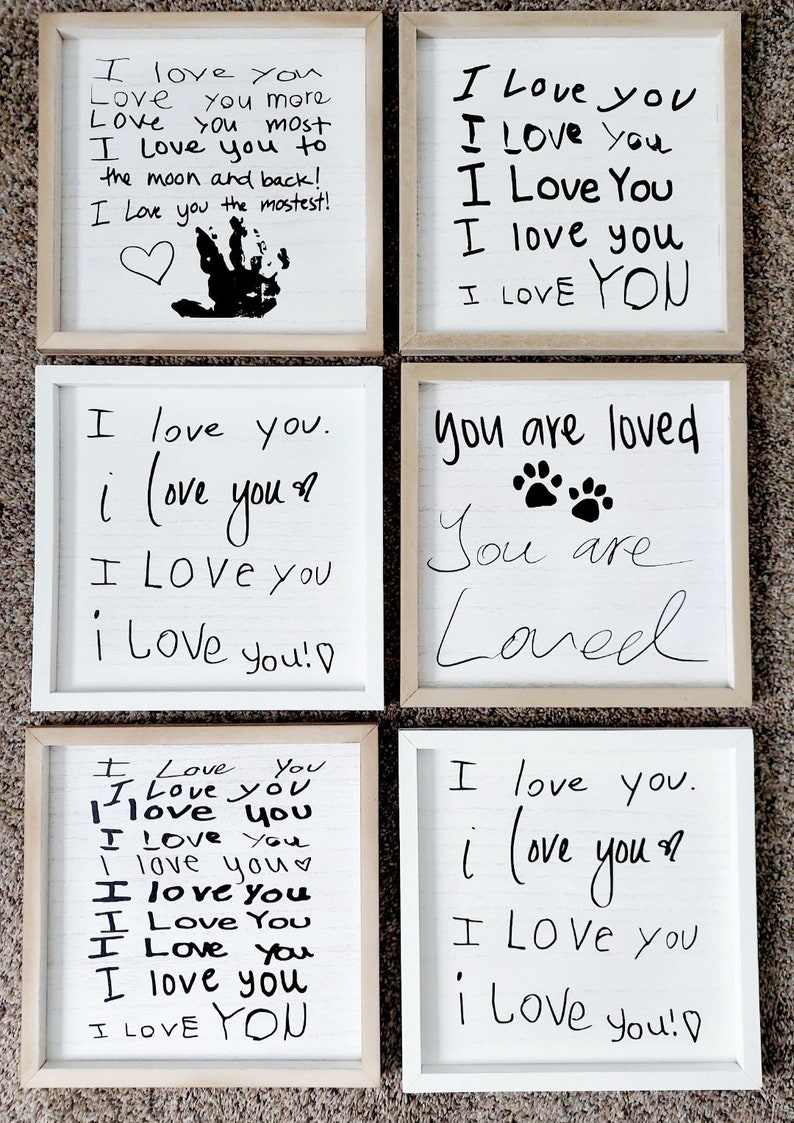 I love you
Love you more
Love you most
I Love you to
the moon and back!
I Love you the mostest!
I Love you
I Love you
I Love You
I love you
I LOVE YOU
I love you.
i love you
I LOVE you
i LOVE you!
you are loved
You are
Loved
I Love you
I Love you
I love you
I Love you
I love you
I love you
I Love You
I Love you
I love you
I LOVE YOU
I love you.
i love you
I LOVE you
i LOVE you!